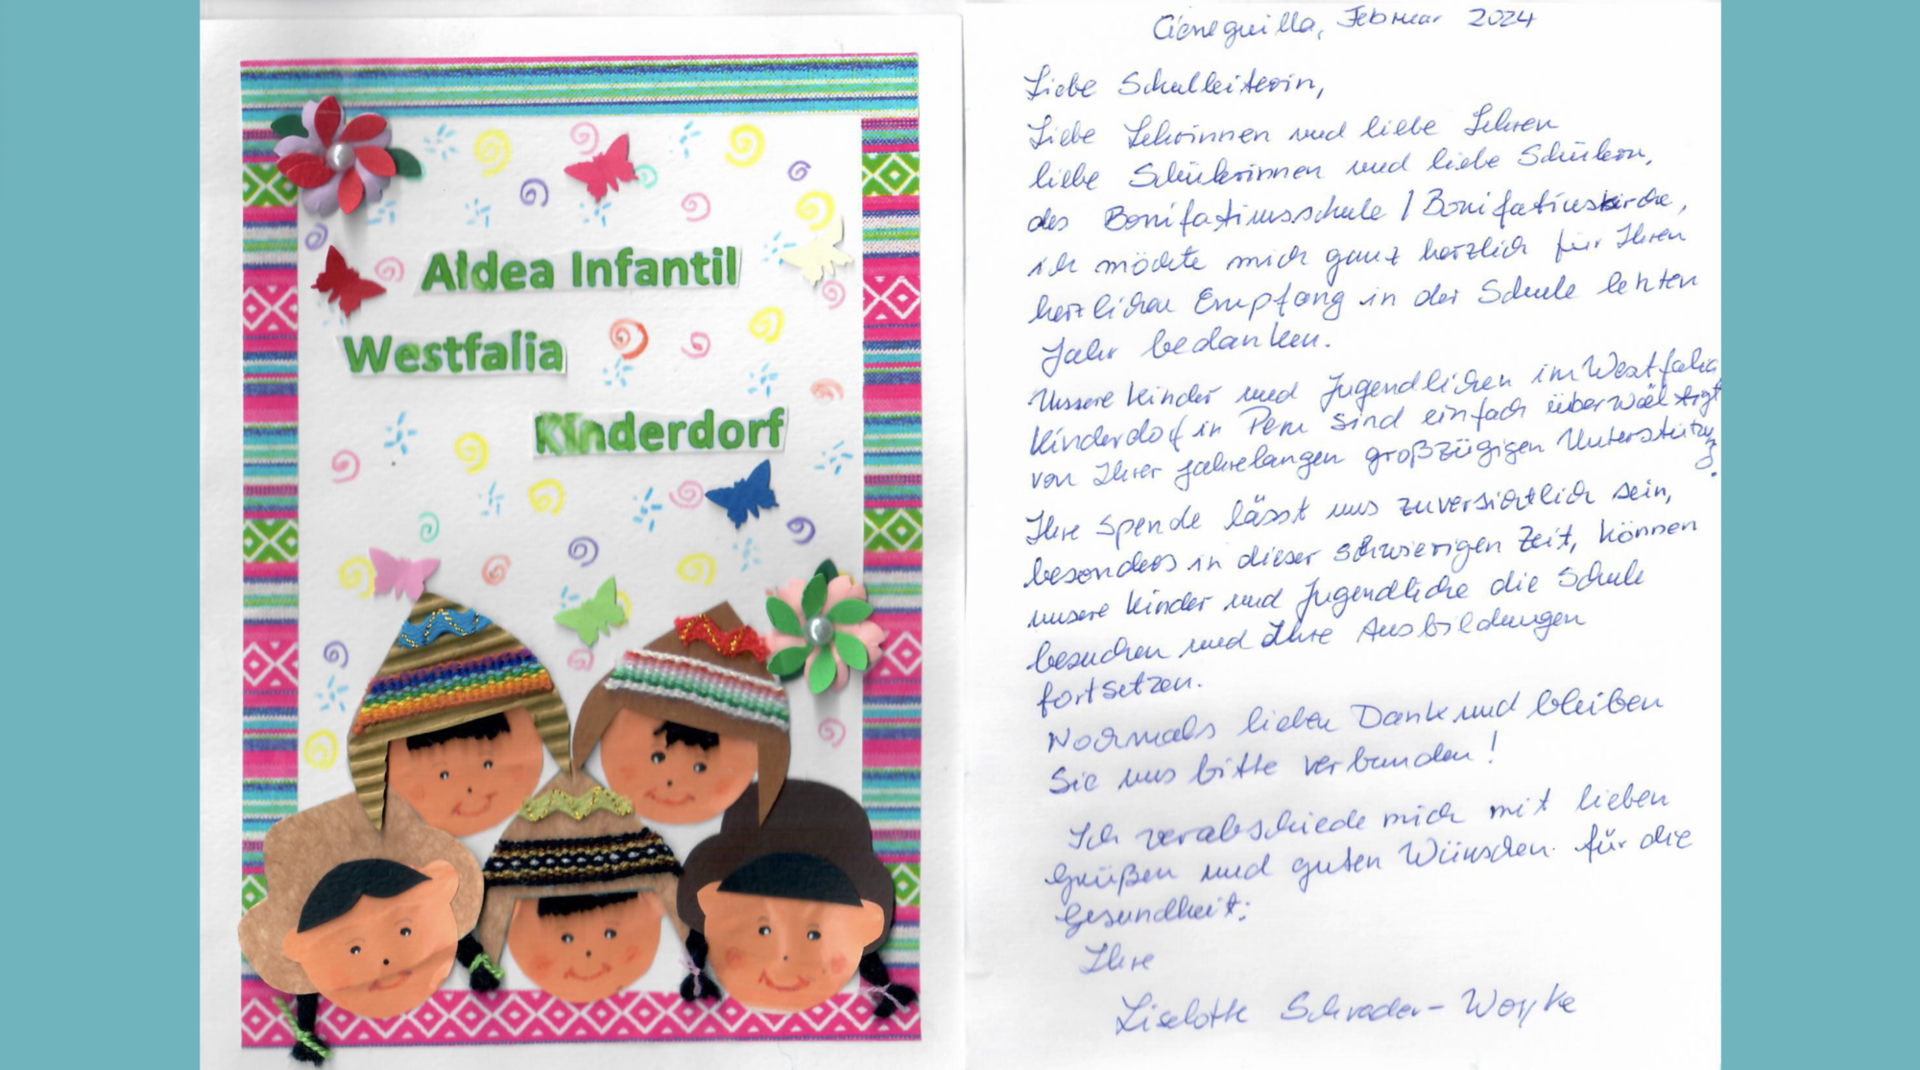 Aldea Infantil
Westfalia
Kinderdorf
Cieneguilla, Februar 2024
Liebe Schulleiterin,
Liebe Lehrinnen und liebe Lehrer
liebe Schülerinnen und liebe Schülern,
des Bonifatiusschule / Bonifatiuskirche,
ich möchte mich ganz herzlich für Ihren
herzlichen Empfang in der Schule letzten
Jahr bedanken.
Unsere Kinder und Jugendlichen im Westfalia
Kinderdorf in Peru sind einfach überwältigt
von Ihrer jahrelangen großzügigen Unterstützung.
Ihre Spende lässt uns zuversichtlich sein,
besonders in dieser schwierigen Zeit, können
unsere Kinder und Jugendliche die Schule
besuchen und Ihre Ausbildungen
fortsetzen.
Nochmals lieben Dank und bleiben
Sie uns bitte verbunden!
Ich verabschiede mich mit lieben
Grüßen und guten Wünschen für die
Gesundheit:
Ihre
Liselotte Schrader-Woyke